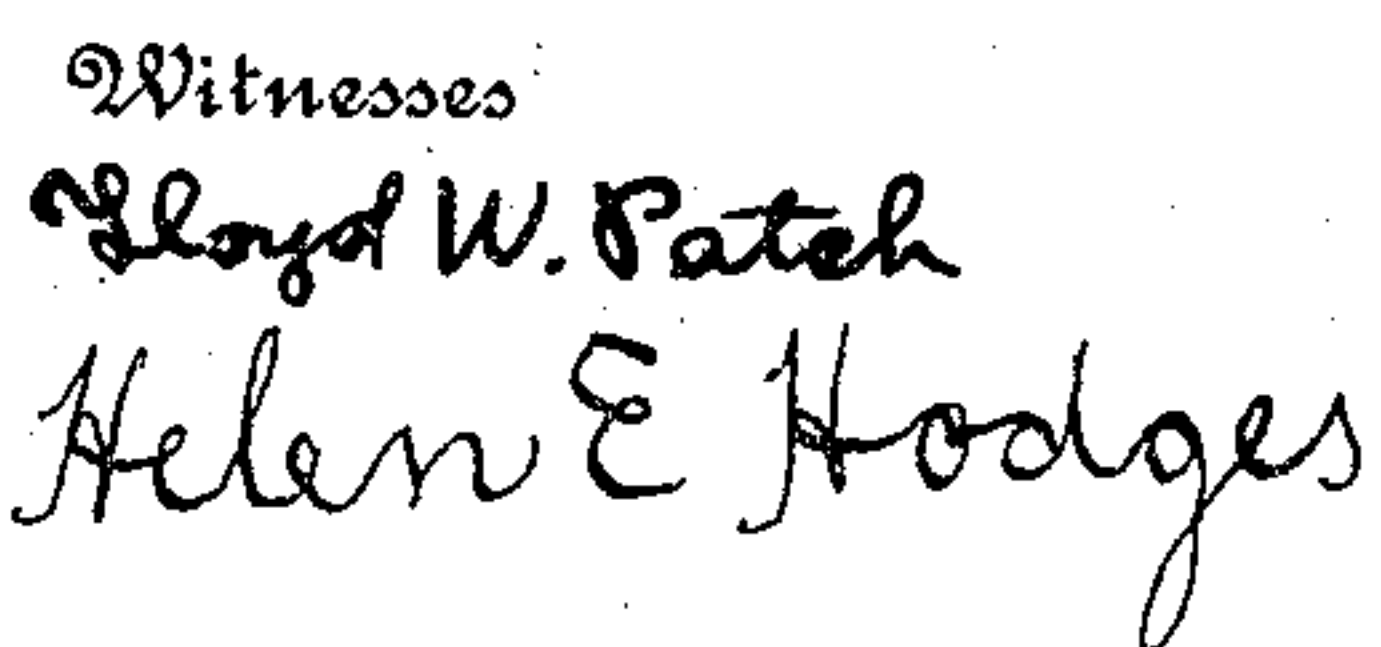 Witnesses
Floyd W. Patch
Helen E Hodges